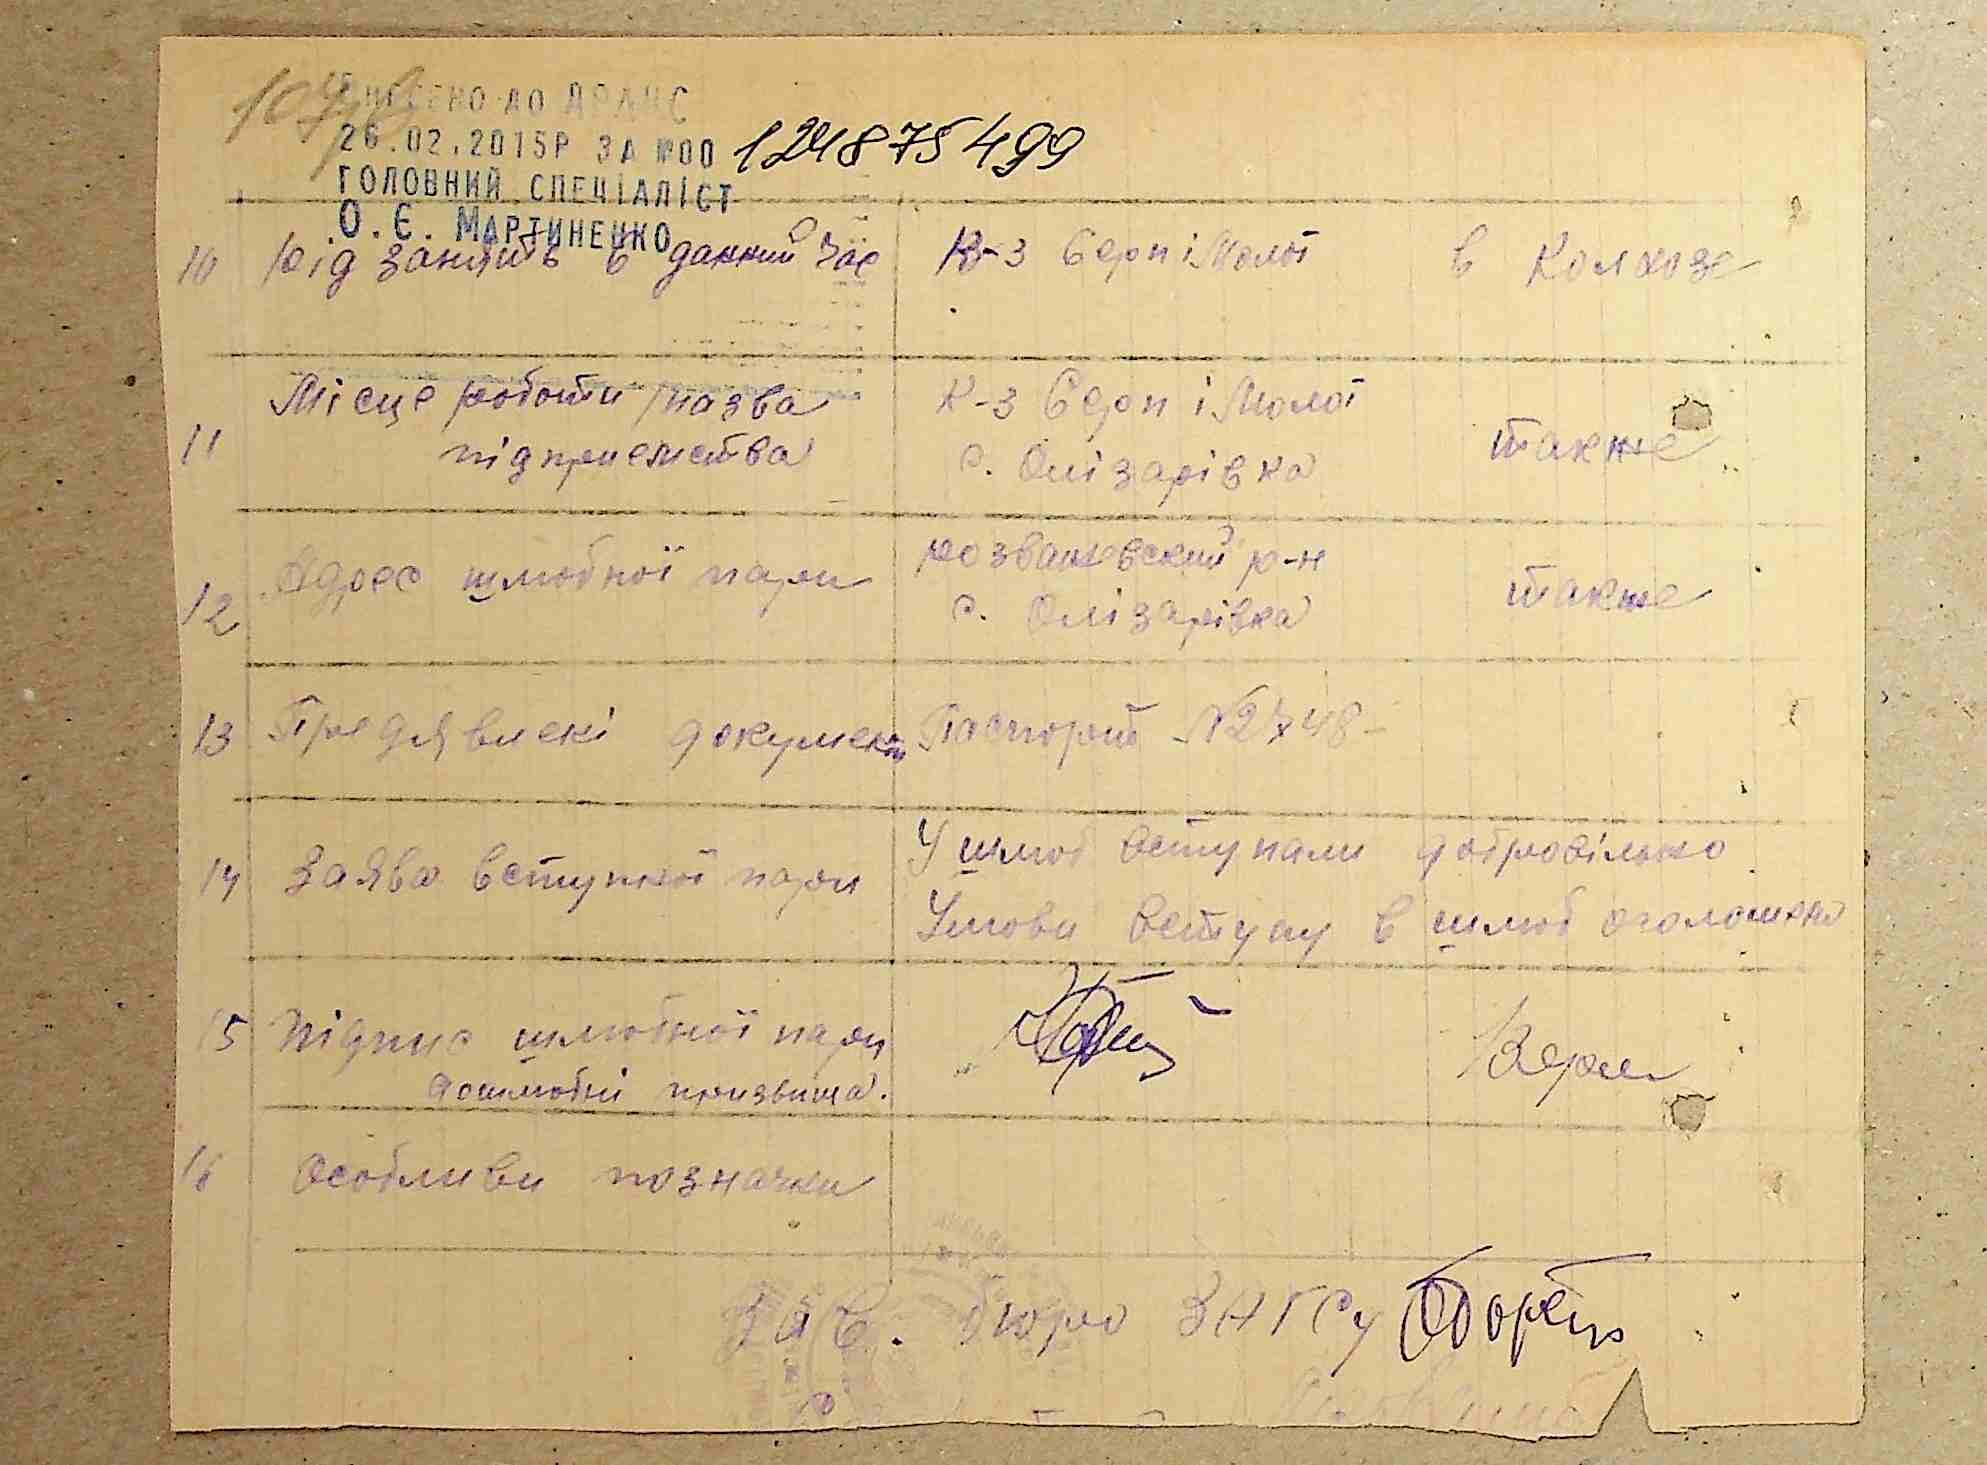 внесено до ДРАЦС
26.02.2015Р ЗА №00 124875499
ГОЛОВНИЙ СПЕЦІАЛІСТ
О.Є. МАРТИНЕНКО
10 Рід занять в данний час К-з Серп і Молот в Колхозе
11 Місце роботи /назва К-з Серп і Молот также
підприємства с. Олізарівка
12 Адрес шлюбної пари розважевский р-н также
с. Олізарівка
13 Предявлені документи Паспорт №2748
14 Заява вступної пари У шлюб вступали добровільно
Умови вступу в шлюб оголошено
15 Підпис шлюбної пари
дошлюбні призвища.
16 Особливи позначки
Зав. бюро ЗАГСу